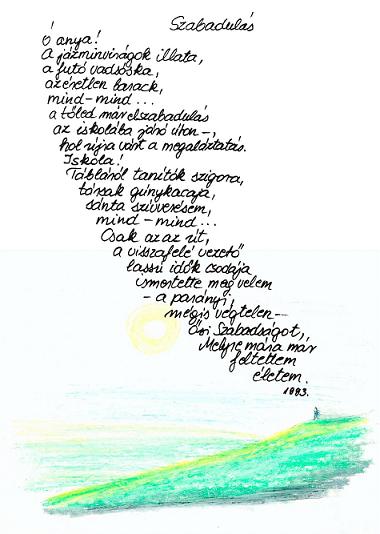 Szabadulás
Ó anya!
a jázminvirágok illata,
a futó vadsóska,
az éretlen barack,
mind-mind...
a tőled már elszabadulás
az iskolába járó úton-,
hol újra várt a megaláztatás.
Iskola!
Tábláról tanítók szigora,
társak gúnykacaja,
sánta szívverésem,
mind-mind...
Csak az az út,
a visszafelé vezető
lassú idők csodája
ismertette meg velem
- a parányi,
mégis végtelen-
Ősi Szabadságot,
Melyre mára már
feltettem
életem.
1993.